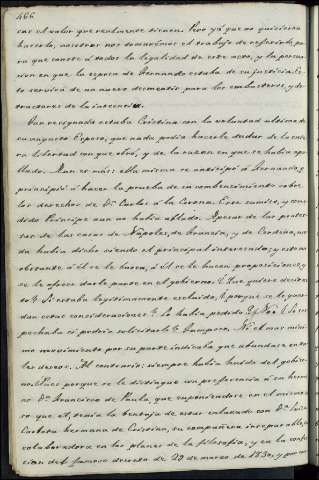 466
cas el valor que realmente tienen. Pero ya que no quisieron
hacerlo, nosotros nos tomarémos el trabajo de referirlo pa
ra que conste á todos la legalidad de este acto, y la persua
sion en que la esposa de Fernando estaba de su justicia. Es
to servirá de un nuevo desmentis para los embusteros, y de
tractores de la inocencia.
Tan resignada estaba Cristina con la voluntad ultima de
su augusto Esposo, que nada podia hacerle dudar de la ente
ra libertad con que obró, y de la razon en que se habia apo
llado. Mas es más: ella misma se anticipó á Fernando, y
principió á hacer la prueba de su combencimiento sobre
los derechos de Dn. Carlos á la Corona. Este sumiso, y con
dido Principe aun no habia ablado. Apesar de las protes
tas de las casas de Nápoles, de Francia, y de Cerdeña, na
da habia dicho siendo el principal interesado; y esto no
obstante á él se le busca, á él se le hacen proposiciones, y
se le ofrece darle parte en el gobierno. ¿Que quiere decir es
to? Si estaba legitimamente excluido, ¿porque se le guar
dan estas consideraciones? ¿Lo habia pedido él? No. ¿Lo sos
pechaba ó podria solicitarlo? Tampoco. Ni el mas mini
mo movimiento por su parte indicaba que abundase en ta
les deseos. Al contrario; siempre habia huido del gobier
no. Pues porque se le distingue con preferencia á su herma
no Dn. Francisco de Paula, que suponiendose en el mismo ca
so que él, tenia la ventaja de estar enlazado con Da. Luisa
Carlota hermana de Cristina, su compañera inseparable, y
colaboradora en los planes de la filosofia, y en la confec
cion del famoso decreto de 29 de marzo de 1830, y por con